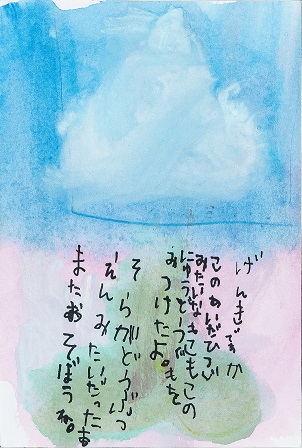 げんきですか
このあいだひつじ
みたいなもこもこの
にゅうどうぐもを
みつけたよ。
そらがどうぶつ
えんみたいだったよ
またあそぼうね。